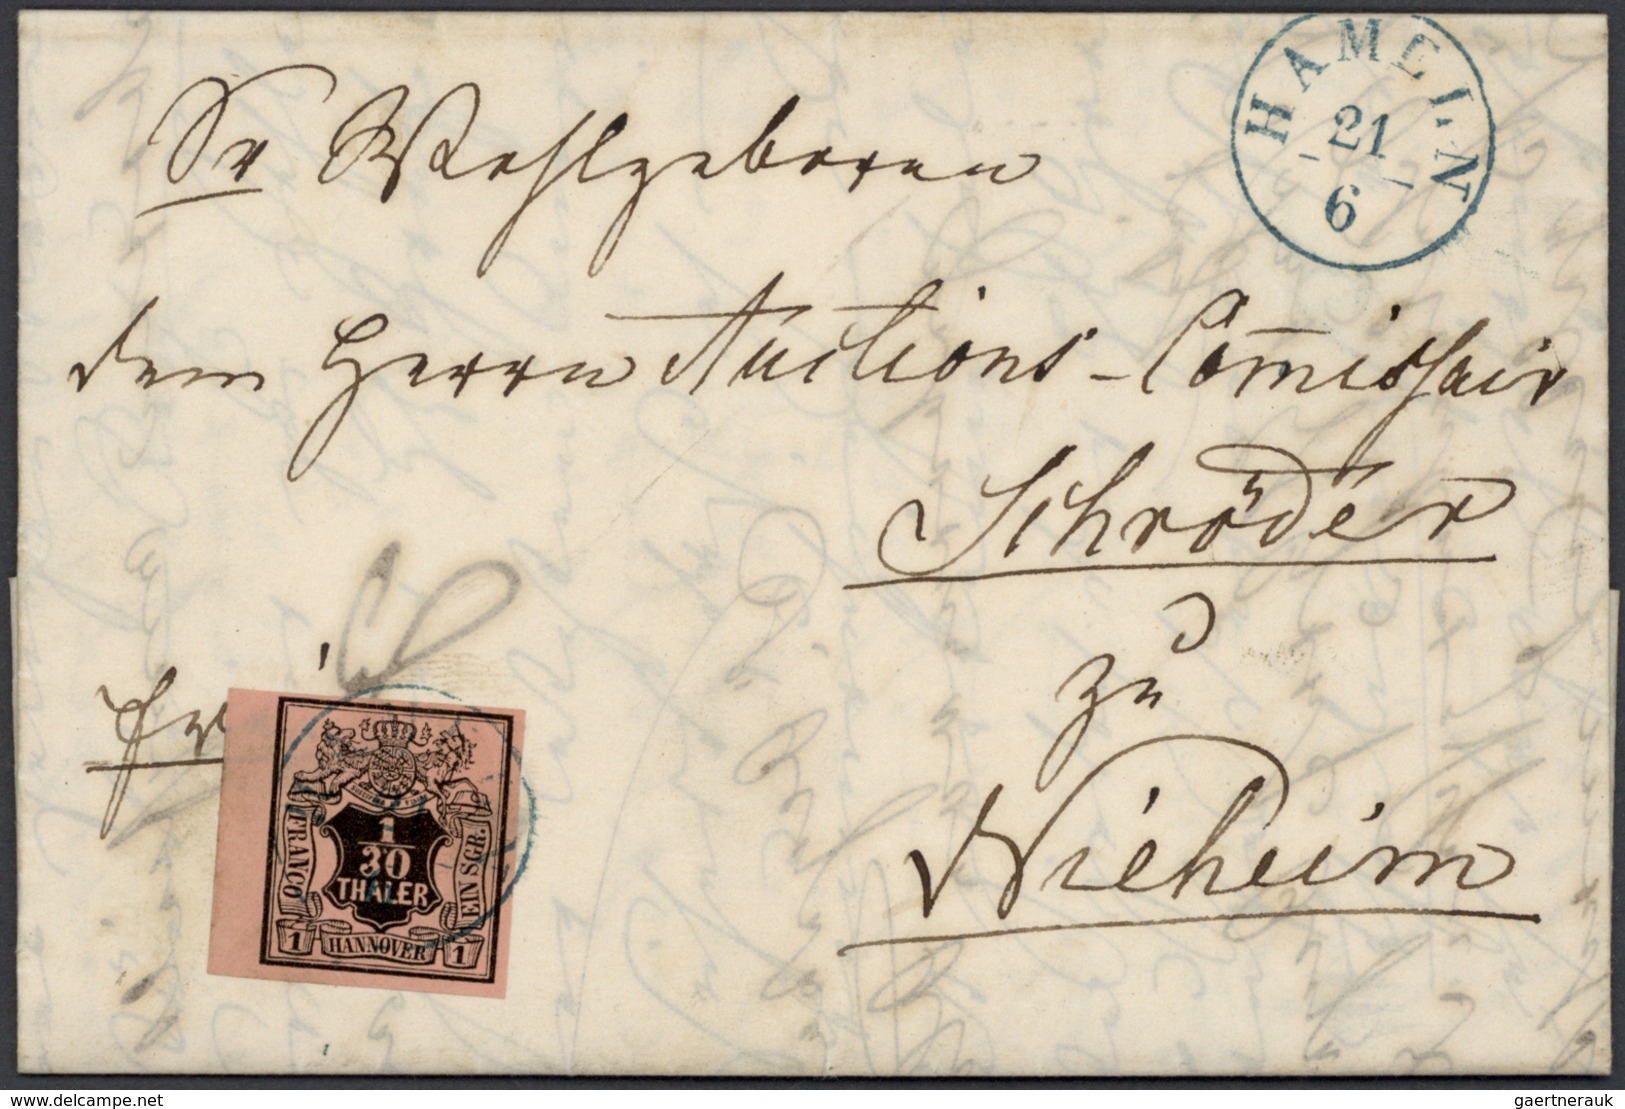 HAMELN
21
6
Sr Wohlgeboren
dem Herrn Auctions-Com̅issair
Schröder
zu
Nieheim
fr
FRANCO
1
30
THALER
EIN SGR.
1 HANNOVER 1
delcampe.net
gaertnerauk